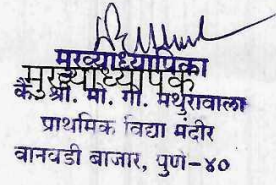 मुख्याध्यापिका
मुख्याध्यापक
कै. श्री. मो. गो. मथुरावाला
प्राथमिक विद्या मंदीर
वानवडी बाजार, पुणे-४०